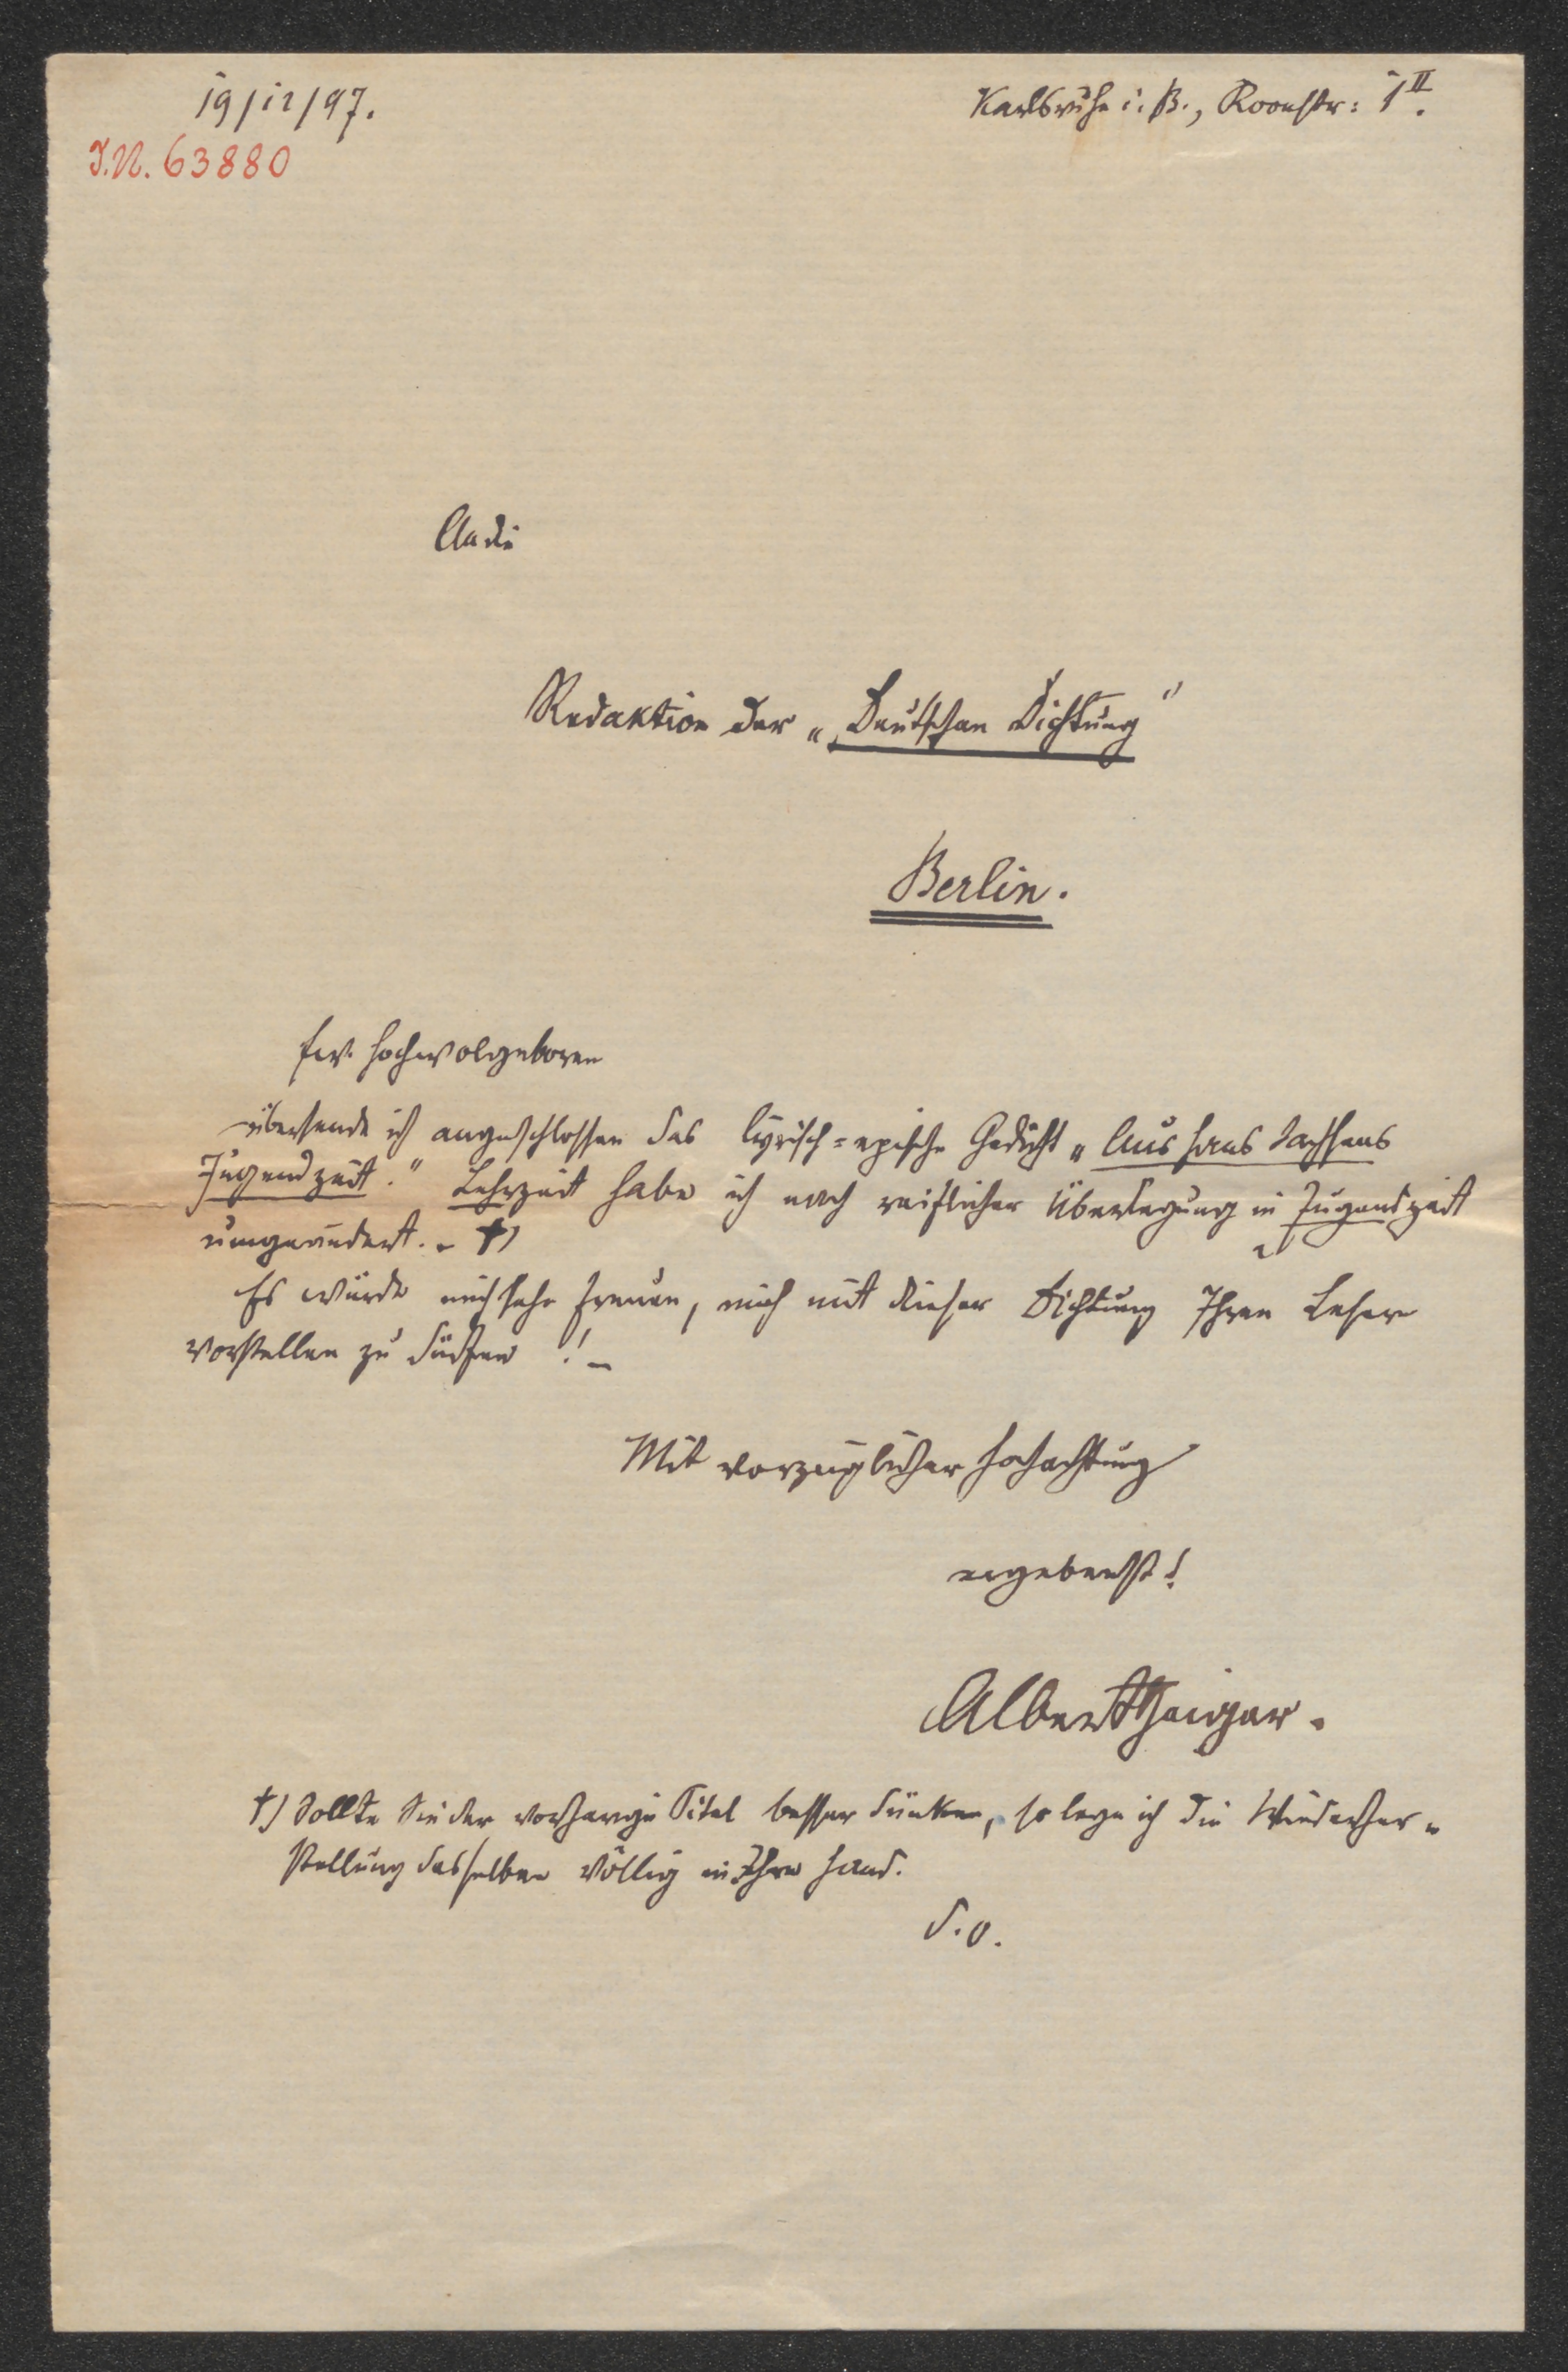 19/12/97.
Karlsruhe i. B., Roonstr: 1II.
J.N. 63880
An die
Redaktion der „Deutschen Dichtung"
Berlin.
Ew. Hochwolgeboren
übersende ich angeschlossen das lyrisch=epische Gedicht „Aus Hans Sachsens
Jugendzeit." Lehrzeit habe ich nach reiflicher Überlegung in Jugendzeit
umgeändert. - †)
Es würde mich sehr freuen, mich mit dieser Dichtung Ihren Lesern
vorstellen zu dürfen! -
Mit vorzüglicher Hochachtung
ergebenst!
Albert Geiger.
†) Sollte Sie der vorherige Titel besser dünken, so lege ich die Wiederher=
stellung desselben völlig in Ihre Hand.
D.O.